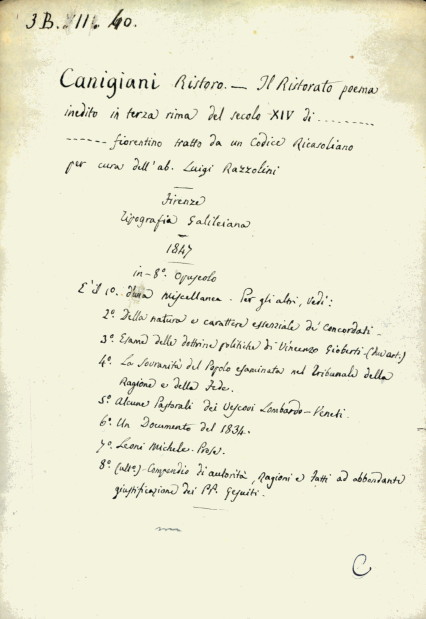 3 B. VII. 40.
Canigiani Ristoro. — Il Ristorato poema
inedito in terza rima del secolo XIV di ..........
------- fiorentino tratto da un Codice Ricasoliano
per cura dell'ab. Luigi Razzolini
Firenze
Tipografia Galileiana
1847
in-8º. Opuscolo
È il 1º. d'una Miscellanea. Per gli altri, vedi:
2º. Della natura e carattere essenziale de' Concordati.
3º. Esame delle dottrine politiche di Vincenzo Gioberti. (due art.)
4º. La Sovranità del Popolo esaminata nel Tribunale della
Ragione e della Fede.
5º. Alcune Pastorali dei Vescovi Lombardo-Veneti.
6º. Un Documento del 1834.
7º. Leoni Michele. Prose.
8º. (ult.º) Compendio di autorità, Ragioni e Fatti ad abbondante
giustificazione dei PP. Gesuiti.
C